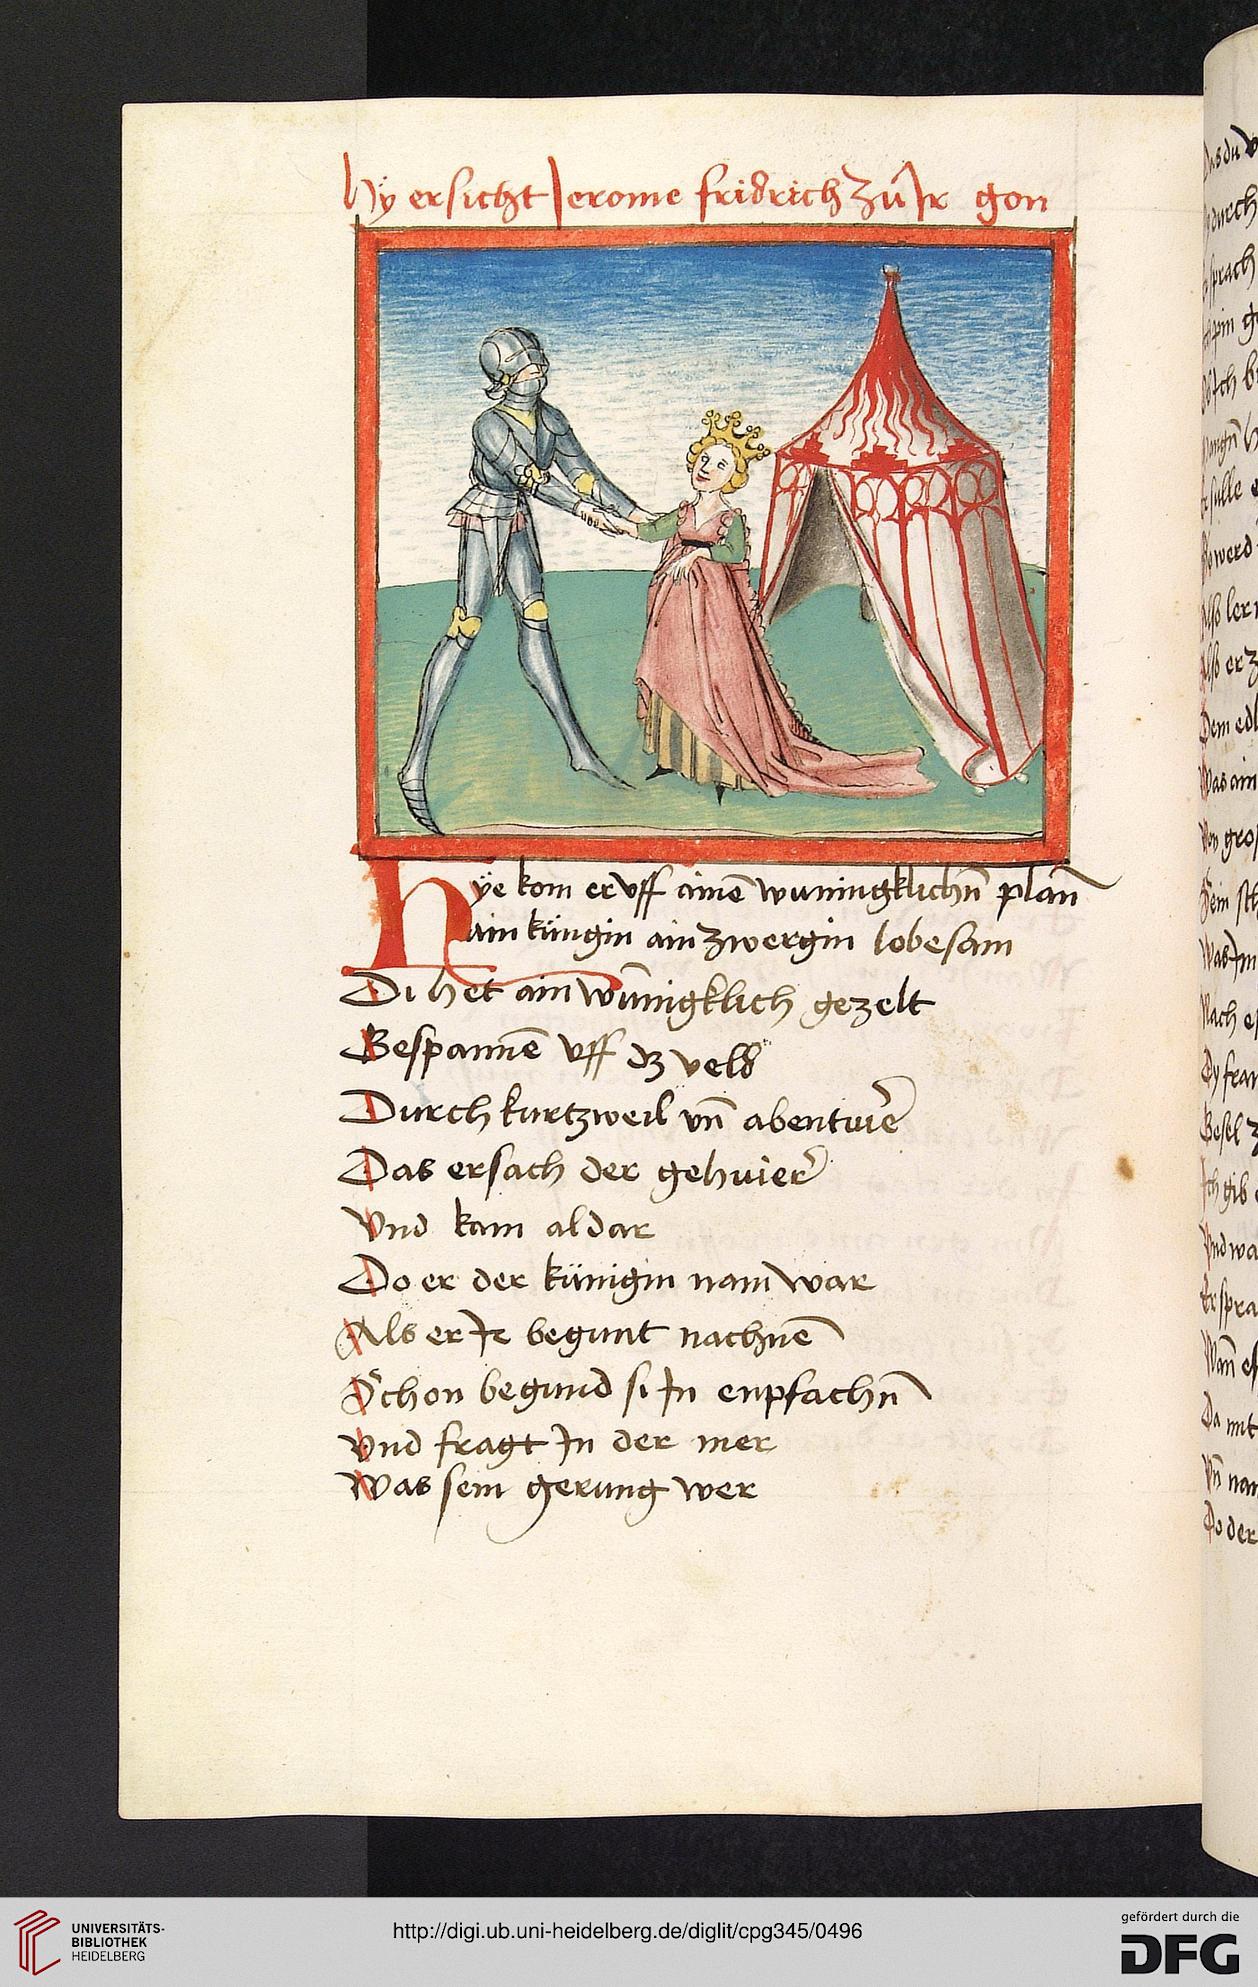 Hÿ ersicht Jerome fridrich zů Ir gon
Hÿe kom er vff ainē wuningklichn̄ plan̄
ain küngin ain zwergin lobesam
Di het ain wūnigklich gezelt
Bespannē vff dz veld
Durch kurtzweil vn̄ abentuiē
Das ersach der gehuier
Vnd kam aldar
Do er der künigin nam war
Als er Ir begunt nachnē
Schon begund si In enpfachn̄
Vnd fragt In der mer
Was sein gerung wer
as du
durch
sprach
werd
Als er
Dem edl
Was ain
Von gro
Sein
Was Im
Nach
Dy fra
Besel
Ich gib
Vnd wa
Er spra
Wan̄
Da mit
Vn̄ nan
Do der
UNIVERSITÄTS-
BIBLIOTHEK
HEIDELBERG
http://digi.ub.uni-heidelberg.de/diglit/cpg345/0496
gefördert durch die
DFG